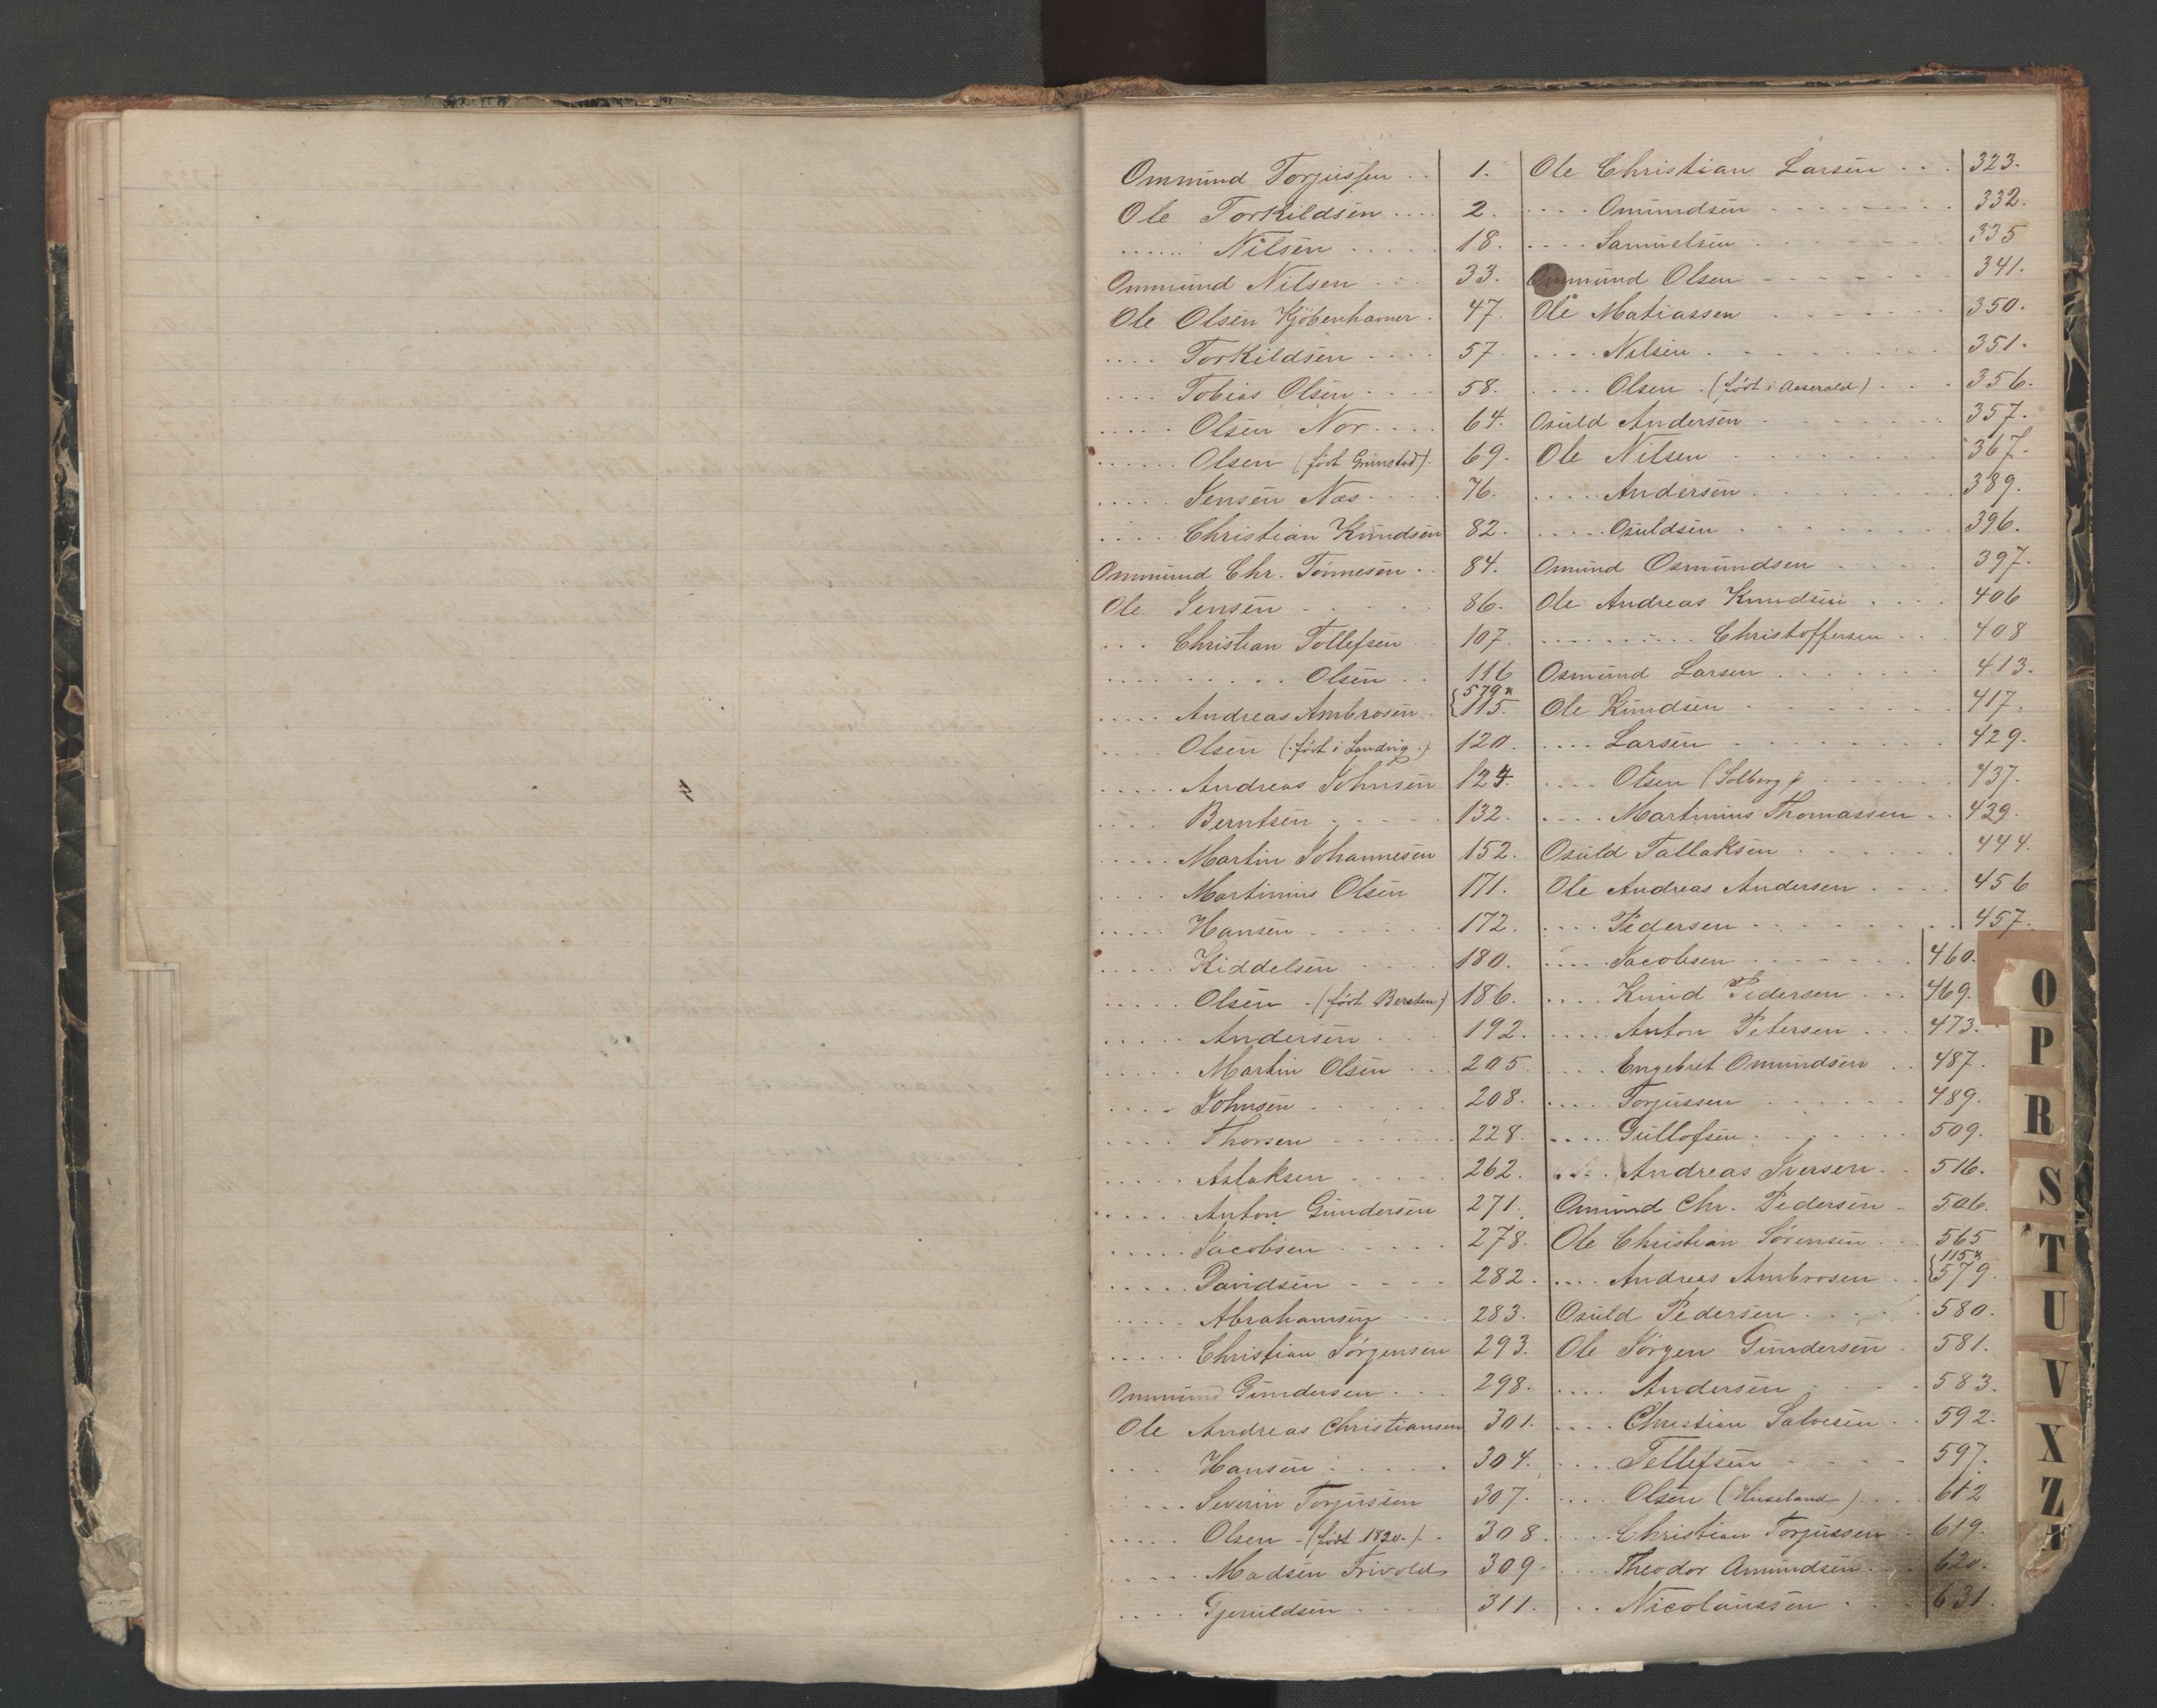 Ommund Torjussen . . 1.
Ole Torkildsen . . . . 2.
. . . . . . Nilsen . . . . . 18.
Ommund Nilsen . . . 33.
Ole Olsen Kjöbenhavner . 47.
. . . . Torkildsen . . . . 57.
. . . . Tobias Olsen . . . . 58.
. . . . . Olsen Nor . . . . 64.
. . . . . . Olsen (född Grimstad). 69.
. . . . . Jensen Næs . . . . 76.
. . . . Christian Knudsen 82.
Ommund Chr. Tönnesen . . 84.
Ole Jensen . . . . . 86.
. . . Christian Tollefsen . . 107.
. . . . . . . . . Olsen . . 116
. . . . . Andreas Ambrosen . { 579* 115.
. . . . Olsen (född i Landvig.) 120.
. . . . . Andreas Johnsen 124.
. . . . Berntsen . . . . . 132.
. . . . . Martin Johannesen 152.
. . . . Martinius Olsen 171.
. . . . . Hansen . . . . . . 172.
. . . . . Kiddelsen . . . . 180.
. . . . . Olsen - (född Bersten) 186.
. . . . . Andersen . . . 192.
. . . . . Martin Olsen . . . 205.
. . . . Johnsen . . . . . . 208.
. . . . Thorsen . . . . . . . 228.
. . . . . Aslaksen . . . . . 262.
. . . . . Anton Gundersen 271.
. . . . . Jacobsen . . . . . 278.
. . . . . Davidsen . . . . 282.
. . . . . Abrahamsen . . . 283.
. . . . . Christian Jörgensen 293.
Ommund Gundersen . . . 298.
Ole Andreas Christiansen 301.
. . . Hansen . . . . . 304.
. . . . Severin Torjussen 307.
. . . . . Olsen - (född 1820.) . . 308.
. . . . . Madsen Trivolds 309.
. . . . Gjeruldsen . . . . 311.
Ole Christian Larsen . . . 323.
. . . . Omundsen . . . . . . . 332.
. . . . Samuelsen . . . . . . . 335
Ommund Olsen . . . . . . . 341.
Ole Matiassen . . . . . . . 350.
. . . . Nilsen . . . . . . . . 351.
. . . . Olsen . (född i Aaserald) . . . 356.
Osuld Andersen . . . . . . . 357.
Ole Nilsen . . . . . . . . 367.
. . . . . Andersen . . . . . . . 389.
. . . . . Osuldsen . . . . . . . 396.
Omund Osmundsen . . . . . 397.
Ole Andreas Knudsen . . . . 406
. . . . . . . . . Christoffersen . . . 408
Osmund Larsen . . . . . . 413.
Ole Knudsen . . . . . . . 417.
. . . . Larsen . . . . . . . 429.
. . . . Olsen (Solberg) . . . . . 437.
. . . . Martinius Thomassen . . 439.
Osuld Tallaksen . . . . . . 444.
Ole Andreas Andersen . . . . 456
. . . . Pedersen . . . . . . . . 457.
. . . . Jacobsen . . . . . . 460.
. . . . Knud Pedersen . . . 469.
. . . . . Anton Petersen . . . 473.
. . . . Engebret Omundsen . . 487.
. . . . Torjussen . . . . . . 489.
. . . . . Gullofsen . . . . . . . 509.
. . . Andreas Iversen . . 516.
Omund Chr. Pedersen - 506.
Ole Christian Sörensen . . . 565
. . . . Andreas Ambrosen . . { 115* 579.
Osuld Pedersen . . . . . 580.
Ole Jörgen Gundersen . 581.
. . . . Andersen . . . . . 583.
. . . . Christian Salvesen . . 592.
. . . . Tellefsen . . . . . 597.
. . . . Olsen (Huseland) . . . . 612
. . . . Christian Torjussen . 619.
. . . . Theodor Amundsen . . . 620.
. . . Nicolaussen . . . 631.
O
P
R
S
T
U
V
X
Z